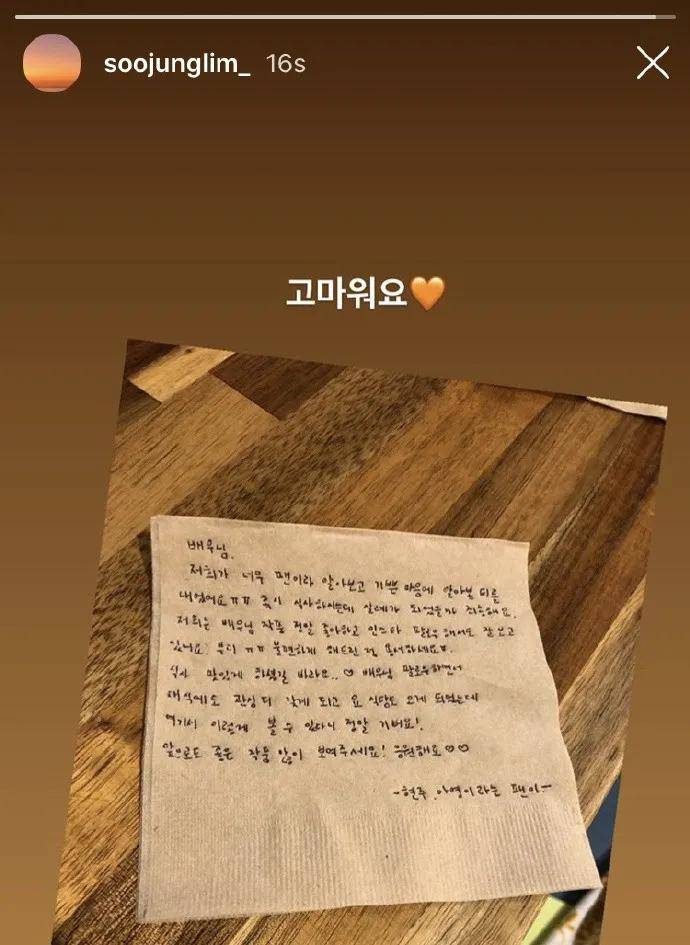 soojunglim_ 16s
고마워요🧡
배우님.
저희가 너무 팬이라 알아보고 기쁜 마음에 알아본 티를
내었어요ㅠㅠ 식사하시는데 실례가 되었을까 죄송해요.
저희는 배우님 작품 정말 좋아하고 인스타 팔로우 해서도 잘 보고
있어요! 불편하게 해드린 점 용서하세요ㅠ
식사 맛있게 하셨길 바라요..♡ 배우님 팔로우하면서
채식에도 관심 더 갖게 되고 요 식당도 오게 되었는데
여기서 이렇게 뵐 수 있다니 정말 기뻐요!
앞으로도 좋은 작품 많이 보여주세요! 응원해요♡♡
-현주, 아영이라는 팬이-